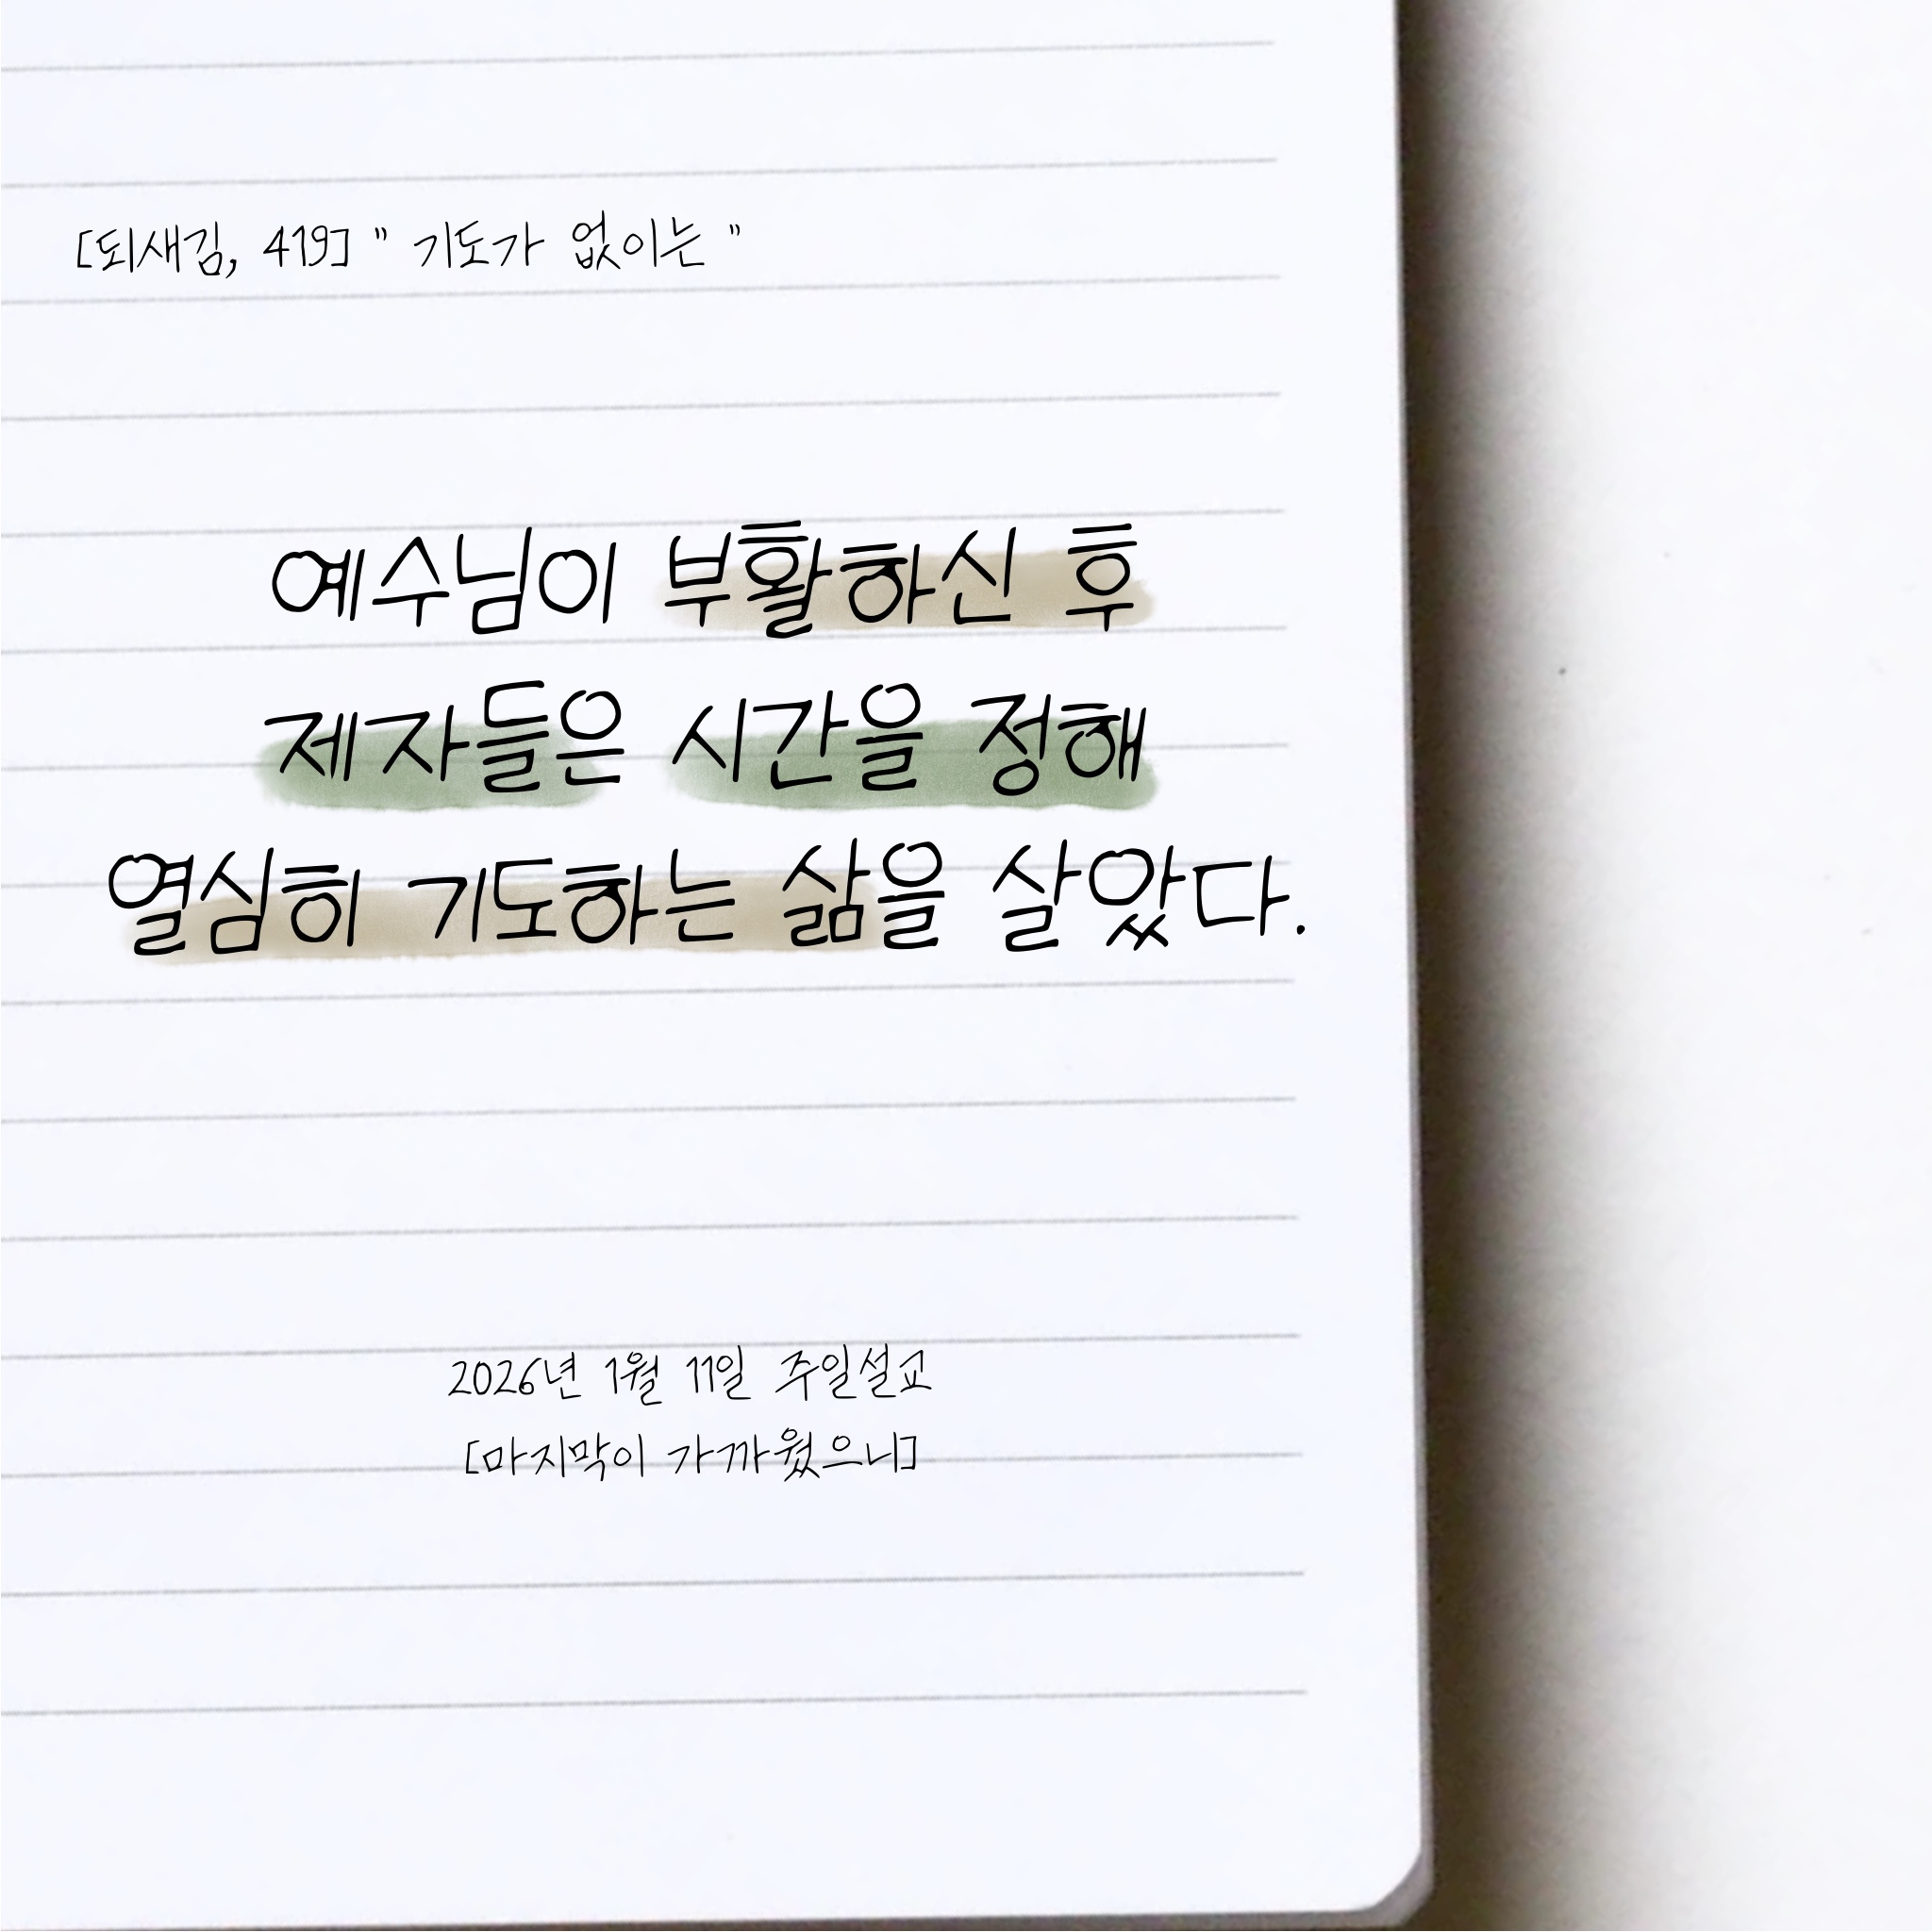 [되새김, 419] " 기도가 없이는 "
예수님이 부활하신 후
제자들은 시간을 정해
열심히 기도하는 삶을 살았다.
2026년 1월 11일 주일설교
[마지막이 가까웠으니]